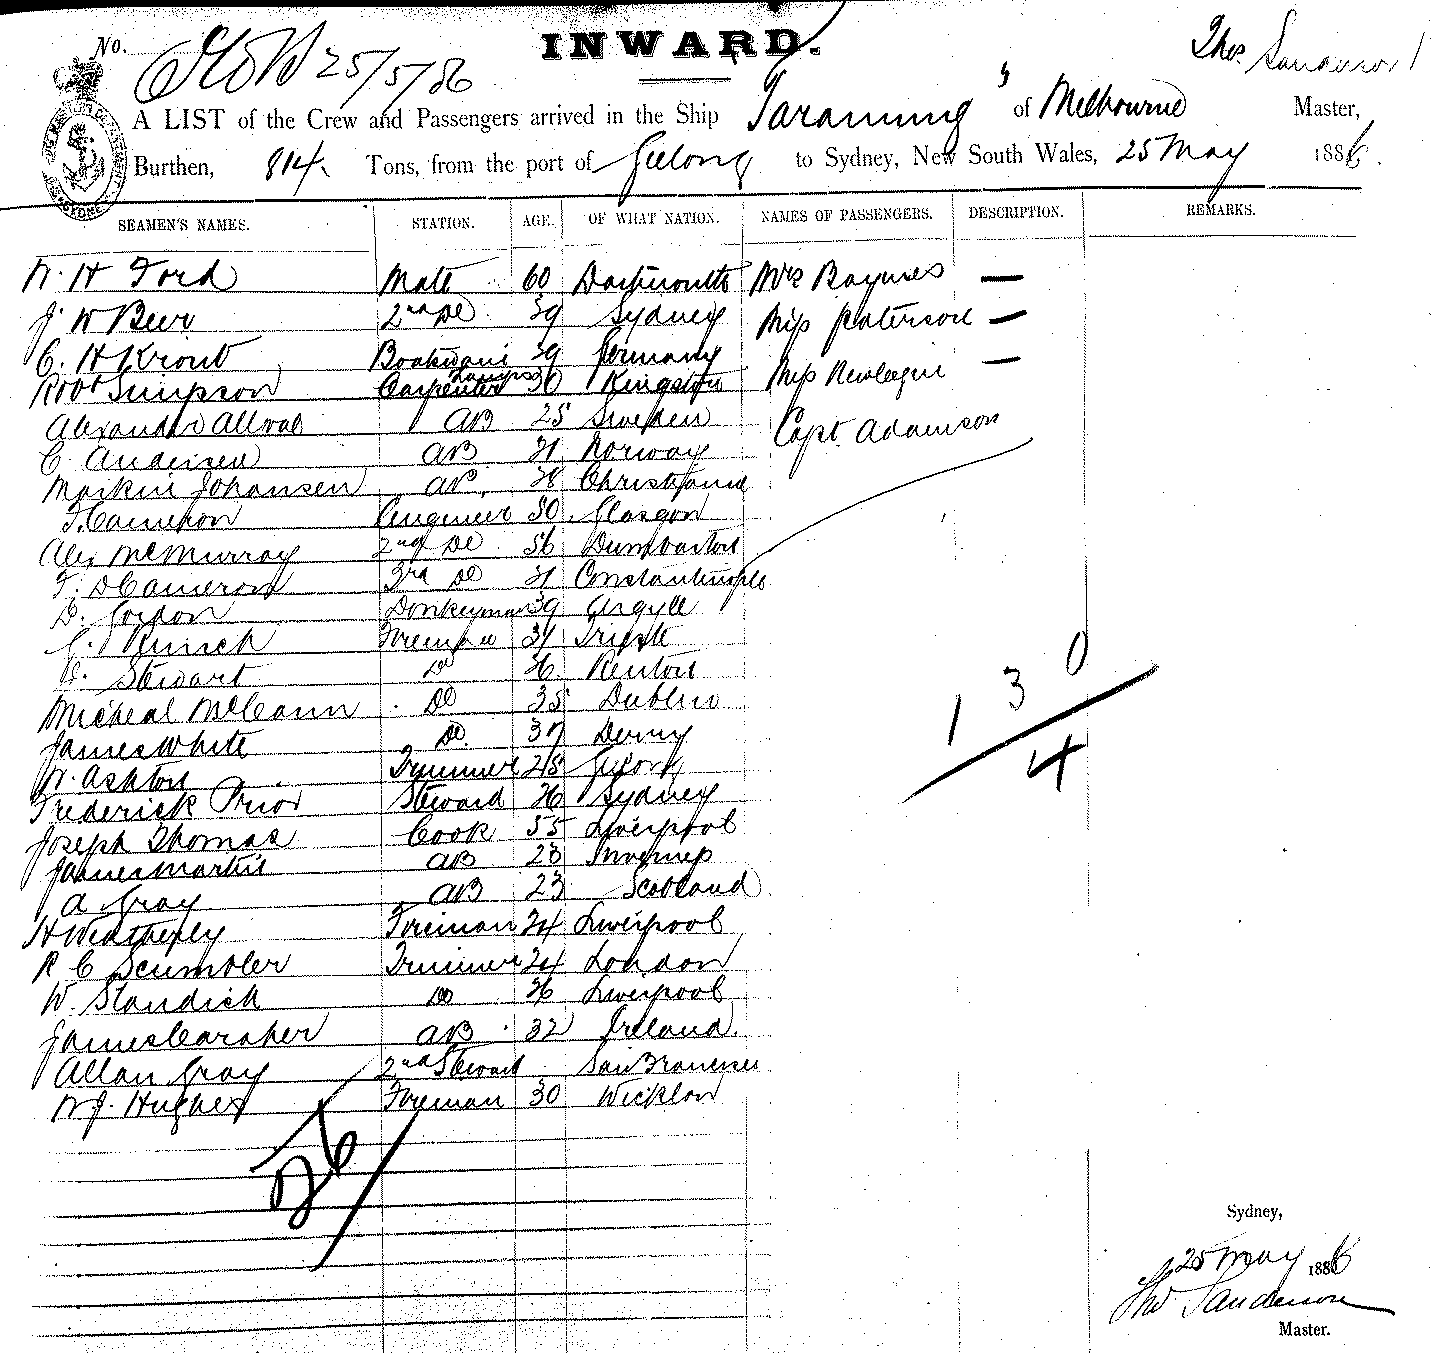 No.
25/5/86
INWARD.
Thos. Sanderson
A LIST of the Crew and Passengers arrived in the Ship Taramung of Melbourne Master,
Burthen, 814 Tons, from the port of Geelong to Sydney, New South Wales, 25 May 1886.
SEAMEN'S NAMES. STATION. AGE. OF WHAT NATION. NAMES OF PASSENGERS. DESCRIPTION. REMARKS.
W. H Ford Mate 60 Dartmouth Mrs Baynes —
J. W Beer 2nd Do 39 Sydney Miss Paterson —
C. H Kront Boatswain 39 Germany Miss —
Robt Simpson Carpenter Lamps 30 Kingston
Alexander 25 Sweden Capt. Adamson
AB
C. Andersen AB 31 Norway
Johansen AB. 38 Christiania
Cameron Engineer 50 Glasgow
Alex McMurray 2nd Do 56 Dumbarton
Cameron 3rd Do 31 Constantinople
D. Gordon Donkeyman 39 Argyle
Fireman Trieste
D. Stewart Do 36 Renton
Micheal McCann Do 35 Dublin
James White Do. 37 Derry
W. Ashton Trimmer 25 Geelong
Frederick Prior Steward 36 Sydney
Joseph Thomas Cook 55 Liverpool
James Martin AB 23 Inverness
A Gray AB 23 Scotland
H Weatherley Fireman 24 Liverpool
R C Scumbler Trimmer 24 London
W. Standich Do 36 Liverpool
James Caraher AB 32 Ireland.
Allan Gray 2nd Steward San Francisco
W J. Hughes Fireman 30 Wicklow
1 3 0
4
26
Sydney,
25 May 1886
Thos Sanderson
Master.